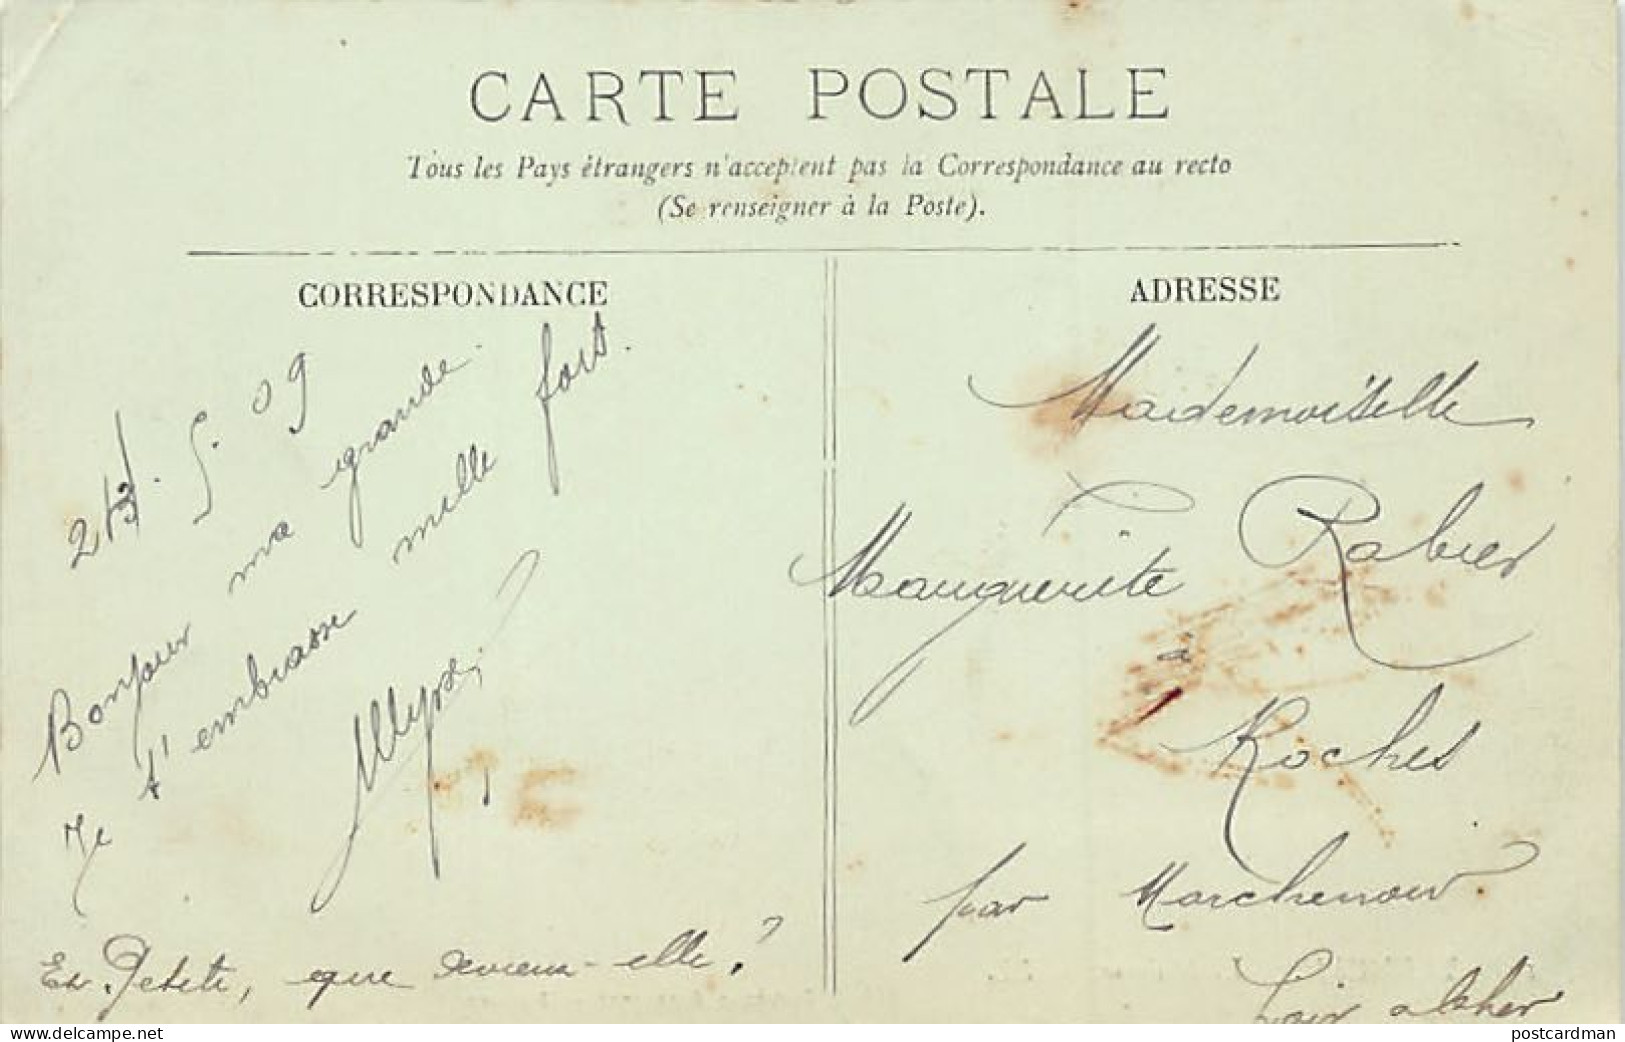 CARTE POSTALE
Tous les Pays étrangers n'acceptent pas la Correspondance au recto
(Se renseigner à la Poste).
CORRESPONDANCE
5. 09
Bonjour ma grande.
Je t'embrasse mille fort.
Et Petite, que deviens-elle?
ADRESSE
Mademoiselle
Marguerite Rabier
à
Roches
par Marchenoir
Loir et Cher
www.delcampe.net
postcardman